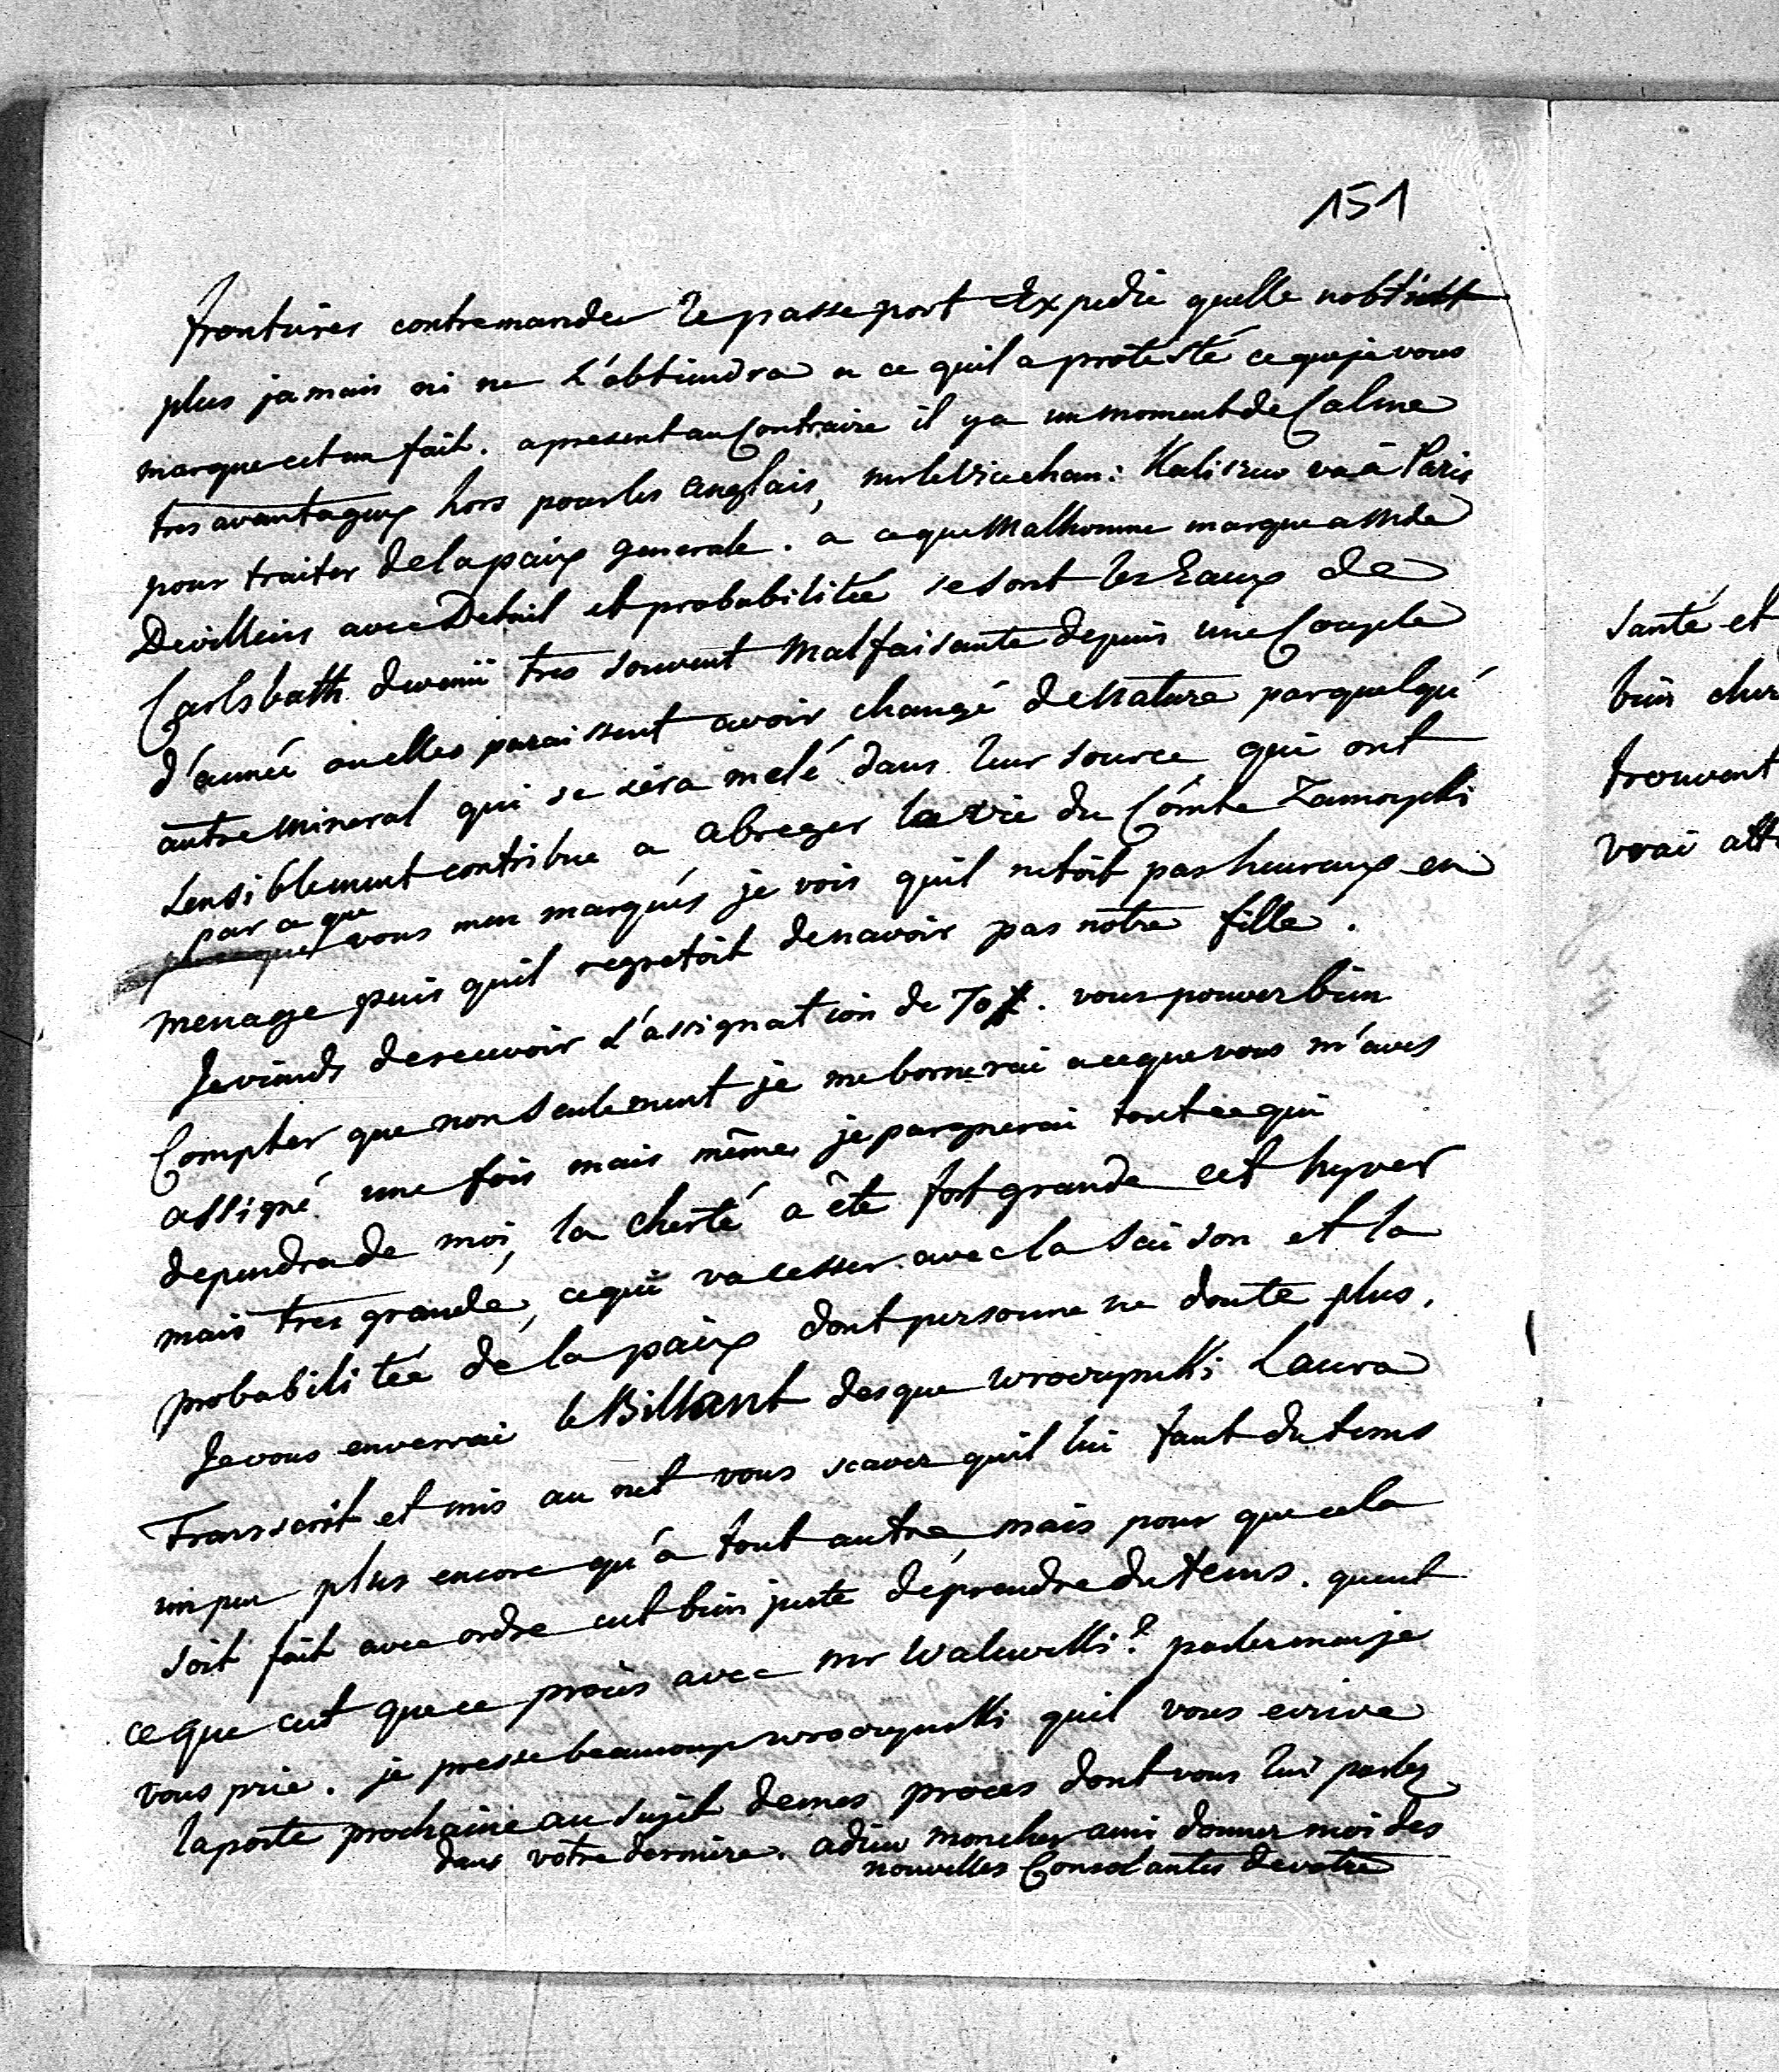 151
frontières contremander le passeport Expedié quelle nobtint
plus jamais ni ne L'obtiendra a ce quil a protesté ce que je vous
marque cet un fait. apresent au Contraire il ya un moment de Calme
tres avantageux hors pour les anglais, mr le Vicechan: Kalischew va à Paris
pour traiter de la paix generale. a ce que Malhomme marque a Mde
Devilleins avec Detail et probabilitée se sont les Eaux de
Carlsbath devenü tres souvent Malfaisante depuis une Couple
d'année ou elles paraissent avoir changé de Nature par quelqu'
autre Mineral qui se sera melé dans leur source qui ont
sensiblement contribue a abreger la vie du Comte Zamoyski
par ce que
vous men marqués je vois quil netoit pas heureux en
menage puis quil regretoit de navoir pas nôtre fille.
Je viends de recevoir L'assignation de 70 #. vous pouvez bien
Compter que non seulement je me bornerai a ce que vous m'aves
assigné une fois mais même jepargnerai tout ce qui
dependra de moi, la cherté a été fort grande cet hyver
mais tres grande, ce qui va cesser avec la saison et la
probabilitée de la paix dont personne ne doute plus.
Je vous enverrai le Billant des que wroczynski Laura
Transcrit et mis au net vous scavez quil lui faut du tems
un peu plus encore qu'à tout autre, mais pour que cela
soit fait avec ordre cet bien juste de prendre du tems. quent
ce que cet que ce procès avec mr Walewski? parlez men je
vous prie. je presse beaucoup wroczynski quil vous ecrive
la poste prochaine au sujet de mes proces dont vous lui parlez
dans votre derniere. adieu mon cher ami donnez moi des
nouvelles Consolantes de votre
santé et
bien cher
trouvent
vrai atta